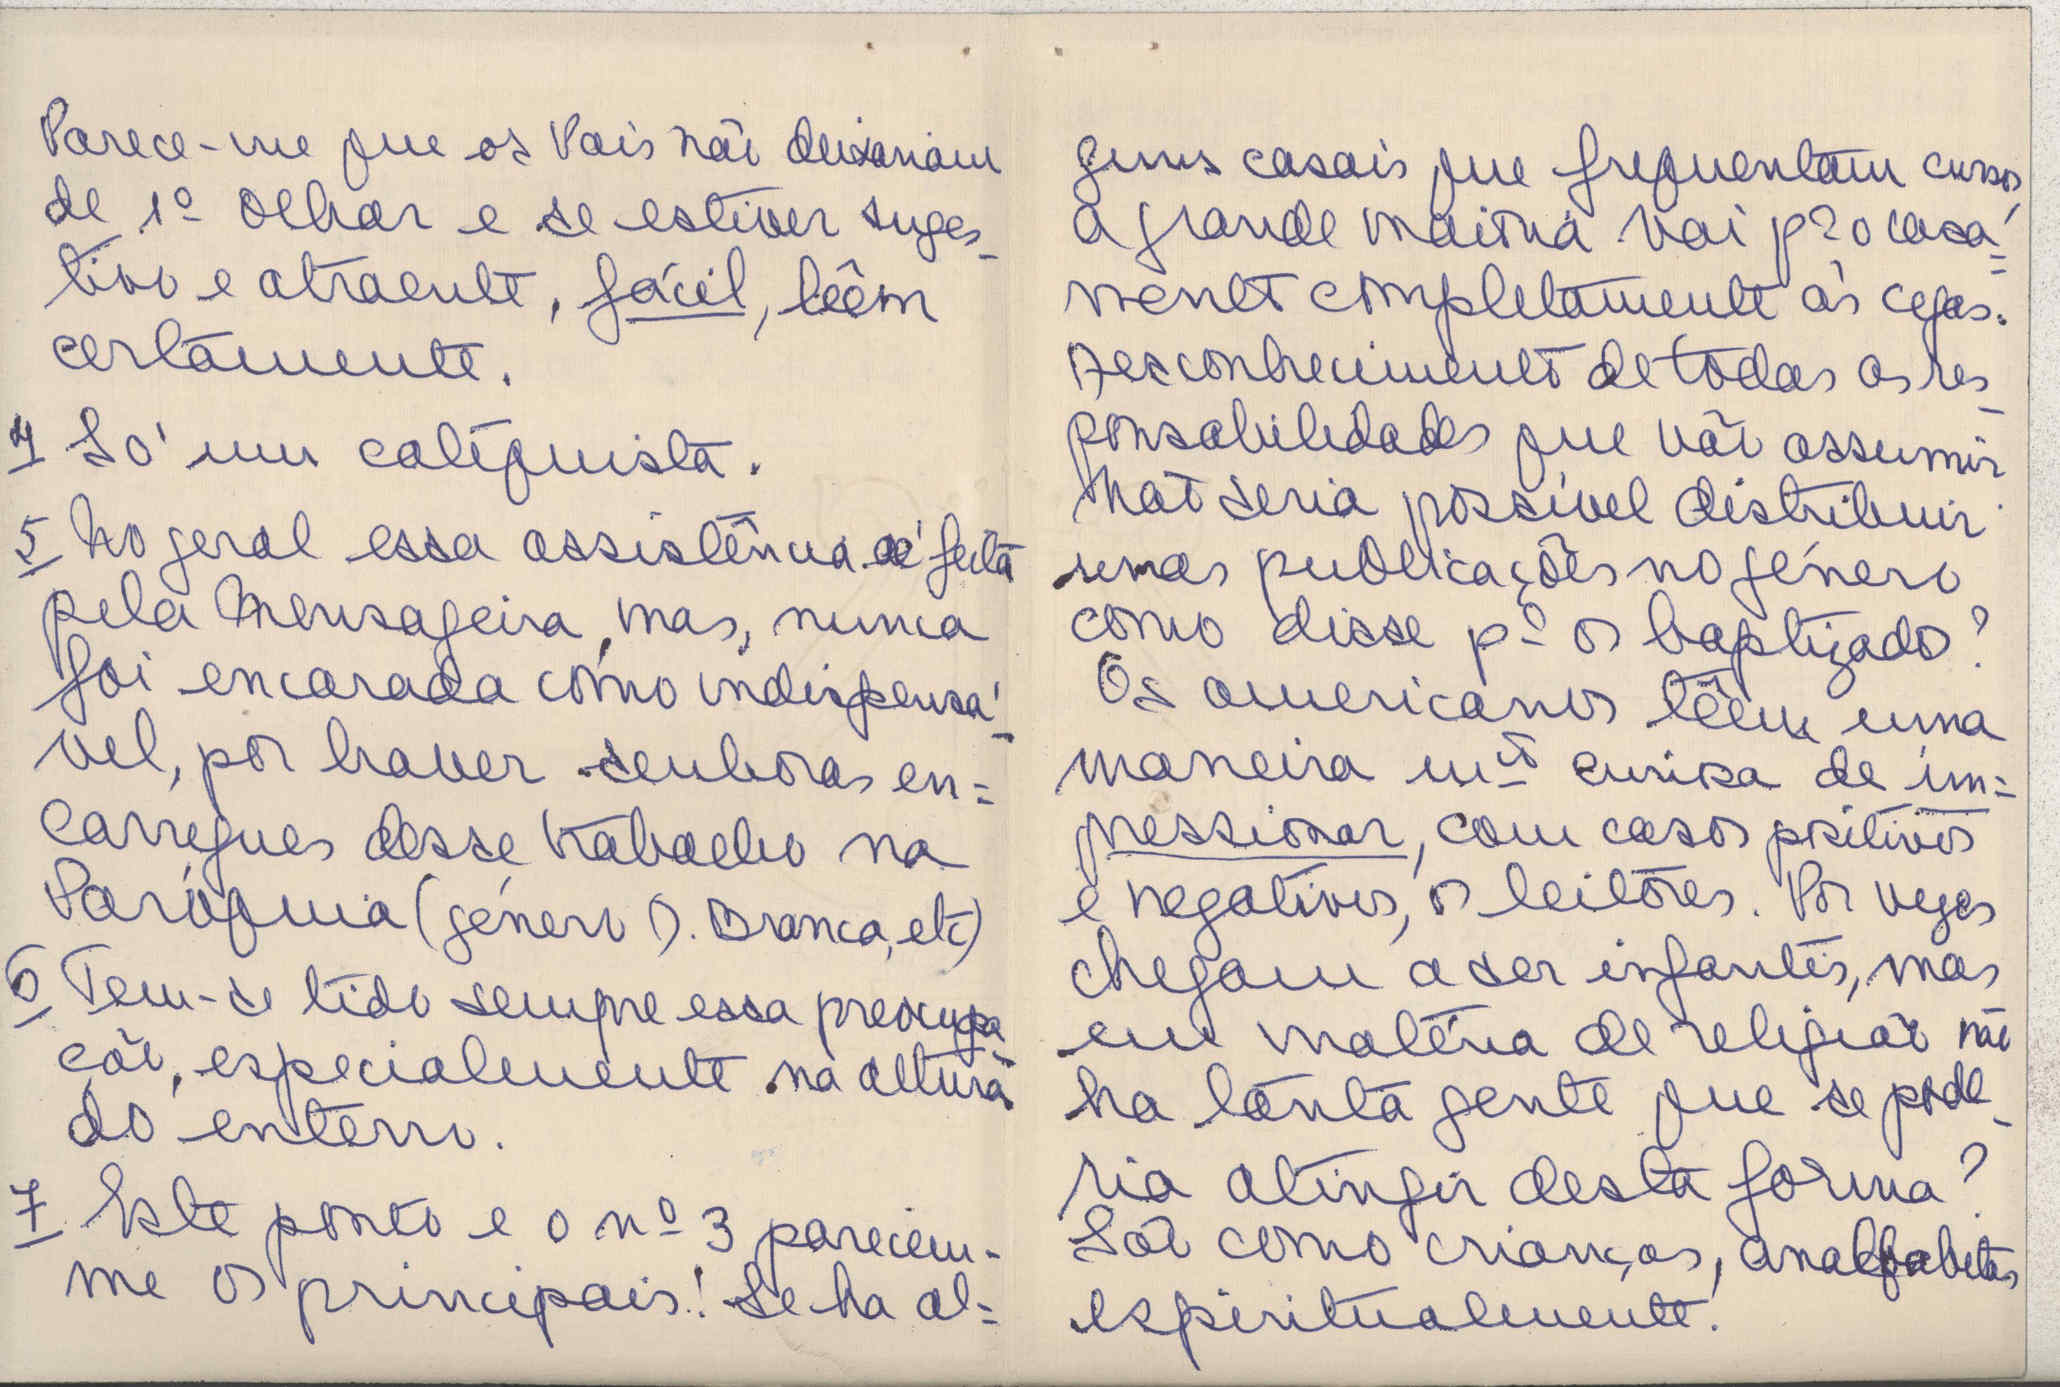 Parece-me que os Pais não deixariam
de 1º olhar e se estiver suges-
tivo e atraente, fácil, lêem
certamente.
4 Só um catequista.
5 No geral essa assistência é feita
pela Mensageira, mas, nunca
foi encarada como indispensá-
vel, por haver senhoras en=
carregues desse trabalho na
Paróquia (género D. Branca, etc)
6 Tem-se tido sempre essa preocupa-
ção, especialmente na altura
do enterro.
7 Este ponto e o nº 3 parecem-
me os principais! Se ha al=
guns casais que frequentam cursos
a grande maioria vai pº o casa=
mento completamente às cegas.
Desconhecimento de todas as res-
ponsabilidades que vão assumir
Não seria possível distribuir
umas publicações no género
como disse pº os baptizados?
Os americanos têem uma
maneira mtº curiosa de im=
pressionar, com casos positivos
e negativos, os leitores. Por vezes
chegam a ser infantis, mas
em matéria de religião não
ha tanta gente que se pode-
ria atingir desta forma?
São como crianças, analfabetas
espiritualmente!